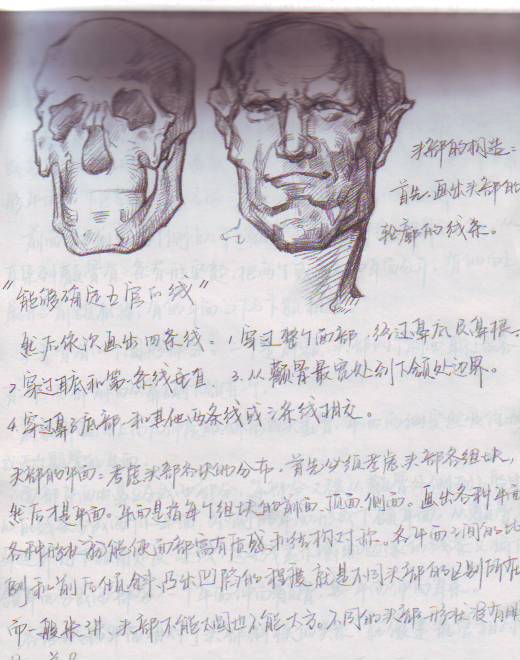 头部的构造:
首先.画出头部的
轮廓的线条。
"能够确定五官的线"
然后依次画出四条线。1.穿过整个面部,经过鼻底及鼻根
2.穿过耳底和第一条线垂直 3.从颧骨最宽处到下颌处边界。
4.穿过鼻子底部和其他两条线或三条线相交。
头部的平面:考虑头部各块的分布.首先必须考虑头部各组块,
然后才是平面.平面是指每个组块的前面.顶面.侧面。画出各种平面
各种形状的能使面部富有质感和结构对称。各平面之间的比
例和前后倾斜.凸出凹陷的程度就是不同头部的区别所在
而一般来讲,头部不能太圆也不能太方。不同的头部形状没有